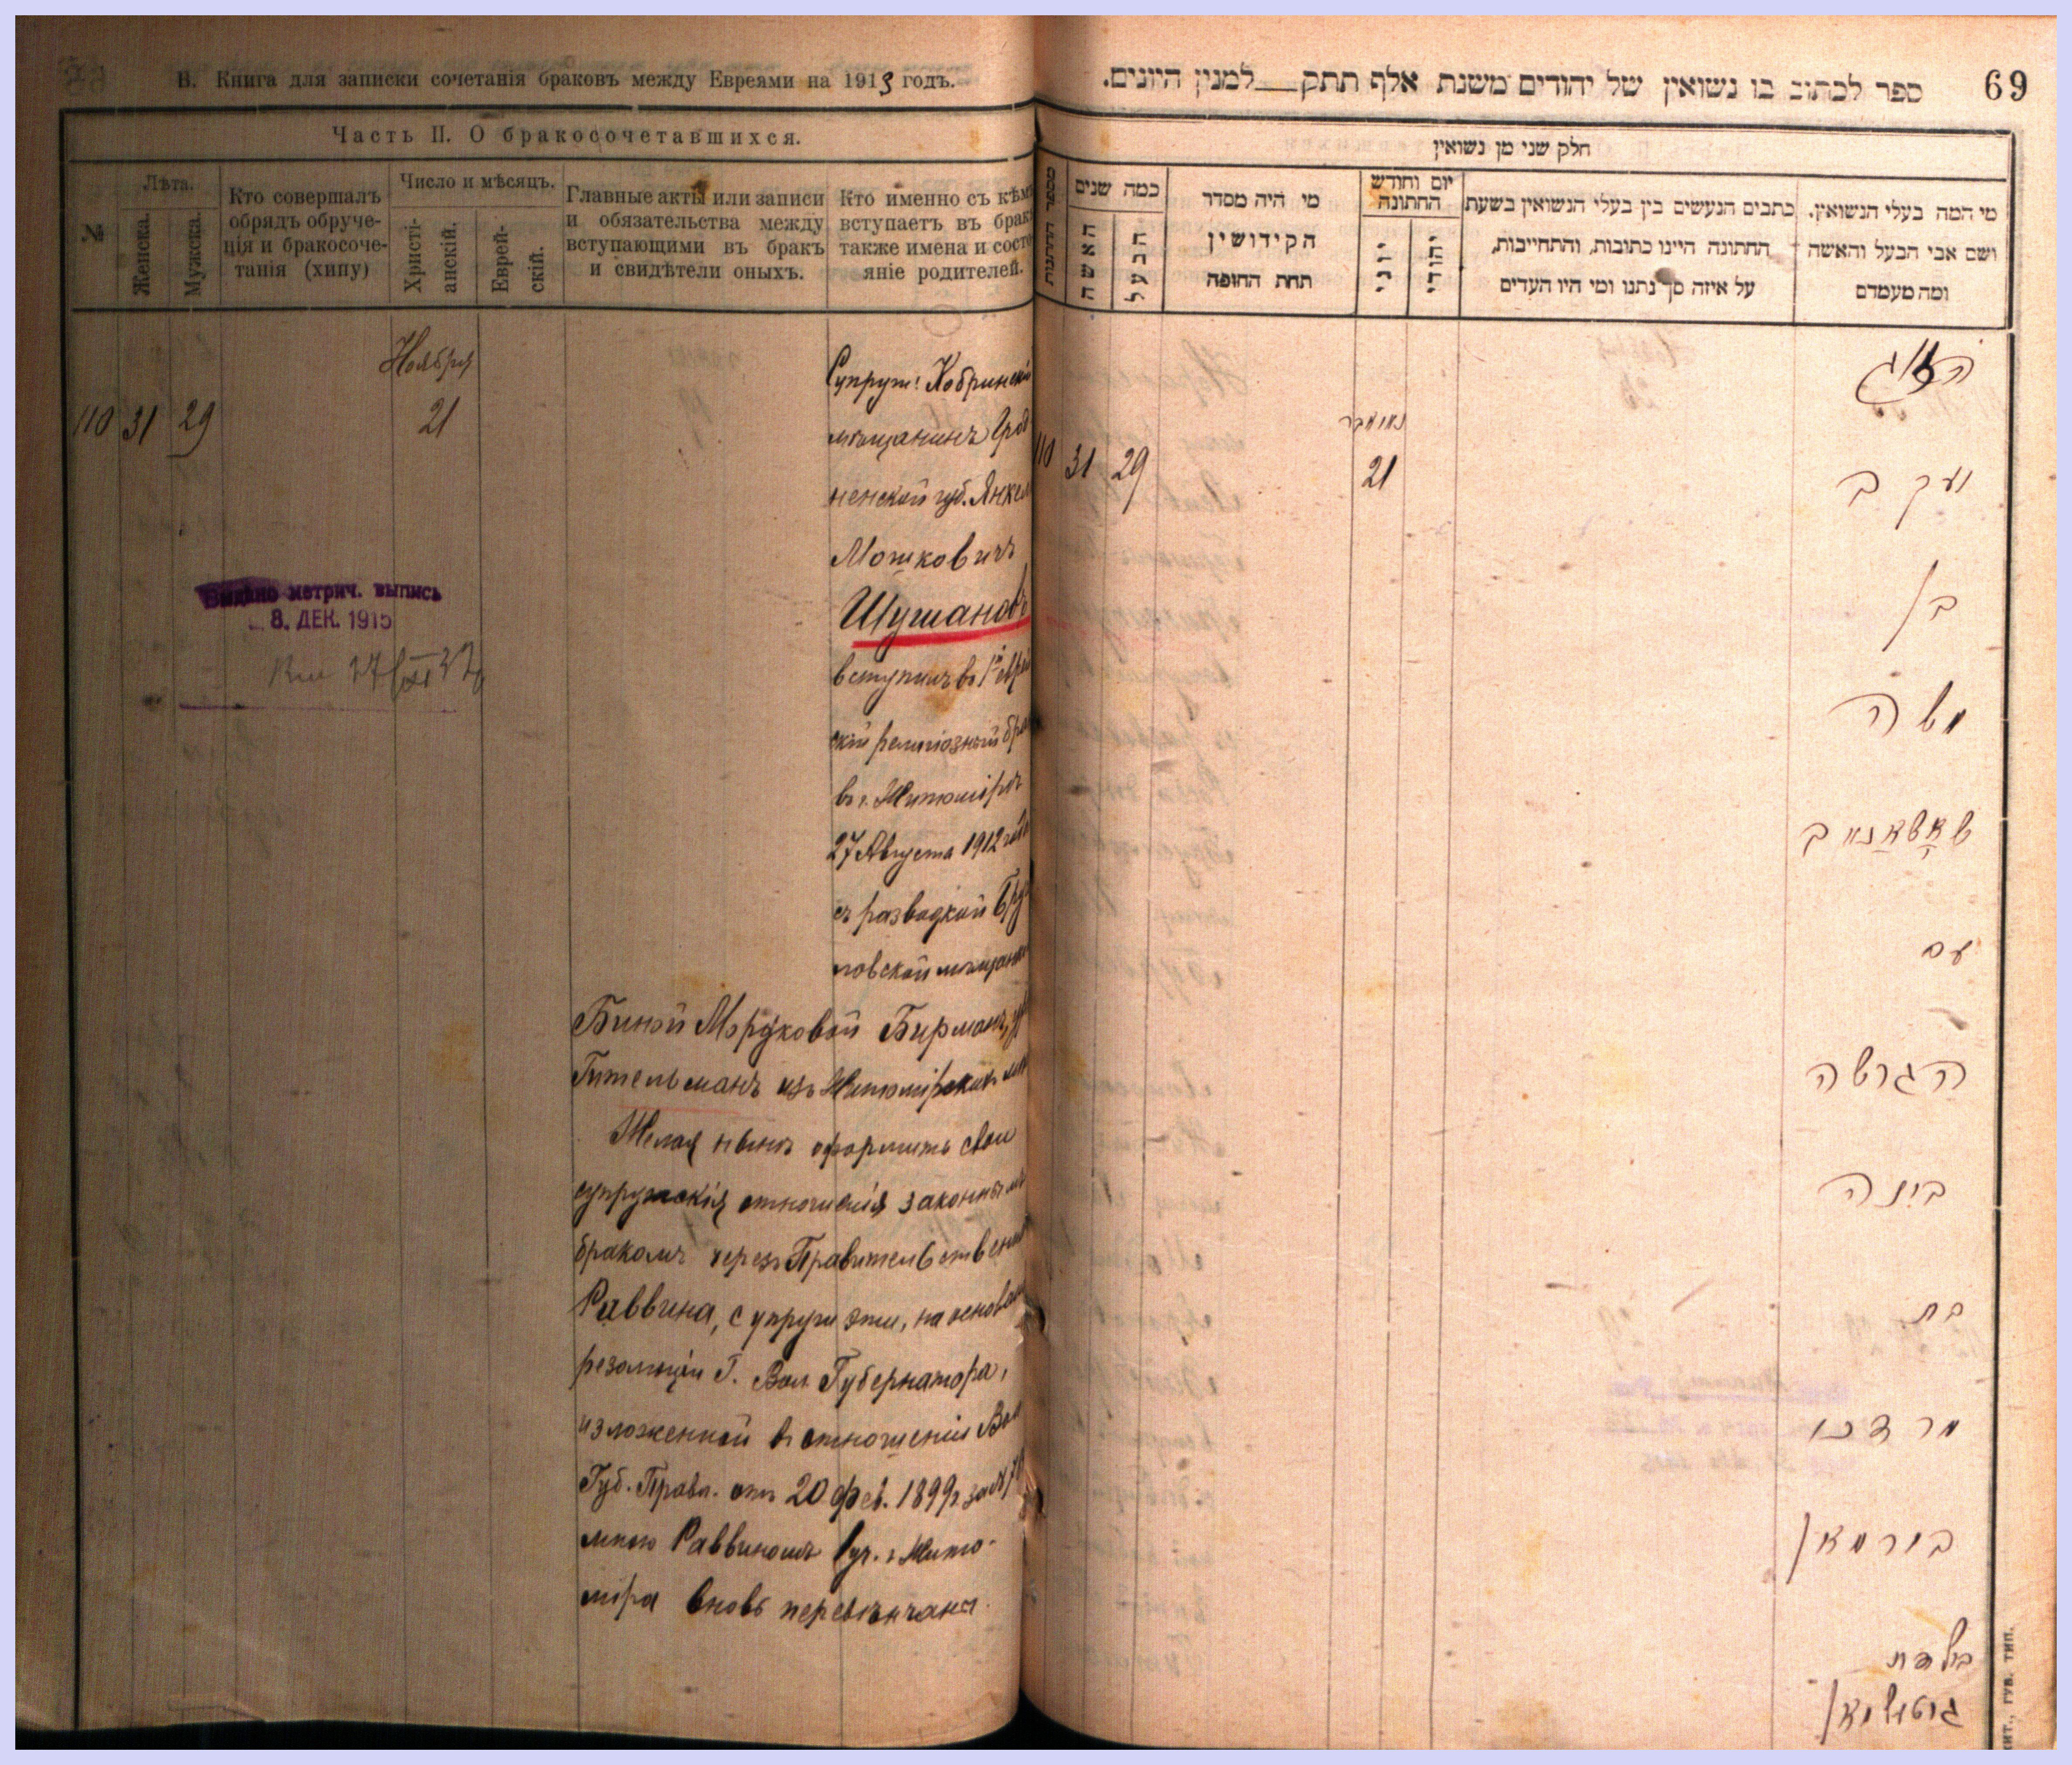 В. Книга для записки сочетанія браковъ между Евреями на 1913 годъ.
Часть II. О бракосочетавшихся.
№
Лѣта.
Женска.
Мужска.
Кто совершалъ
обрядъ обруче-
нія и бракосоче-
танія (хипу)
Число и мѣсяцъ.
Христі-
анскій.
Еврей-
скій.
Главные акты или записи
и обязательства между
вступающими въ бракъ
и свидѣтели оныхъ.
Кто именно съ кѣмъ
вступаетъ въ бракъ
также имена и состо
яніе родителей.
Ноября
110 31 29 21
Супруги: Кобринскій
мѣщанинъ Грод
ненской губ. Янкель
Мошковичъ
Шушановъ
вступилъ въ 1й
скій религіозный бра
въ г. Житомірѣ
27 Августа 1912 года
съ разводкой
ловской мѣщанк
Биной Мордковой Бирманъ,
Гительманъ изъ Житомірскихъ
Желая нынѣ оформить свои
супружескія отношенія законнымъ
бракомъ черезъ Правительствен
Раввина, супруги эти, на основан
резолюціи Г. Вол Губернатора,
изложенной въ отношеніи Вол
Губ. Правл. отъ 20 фев. 1899 г. за №
мною Раввиномъ г. Жито-
міра вновь перевѣнчаны.
Выдано метрич. выпись
8. ДЕК. 1915
69
ספר לכתוב בו נשואין של יהודים משנת אלף תתק למנין היונים.
חלק שני מן נשואין
מספר החתנות
כמה שנים
האשה
הבעל
מי היה מסדר
הקידושין
תחת החופה
יום וחודש
החתונה
יוני
יהודי
כתבים הנעשים בין בעלי הנשואין בשעת
החתונה היינו כתובות, והתחייבות,
על איזה סך נתנו ומי היו העדים
מי המה בעלי הנשואין.
ושם אבי הבעל והאשה
ומה מעמדם
נאוומבר
110 31 29 21
הזוג
יעקב
בן
משה
שאשאנאוב
עם
הגרושה
בינה
בת
מרדכי
בירמאן
בילדת
גיטעלמאן
жит., губ. тип.